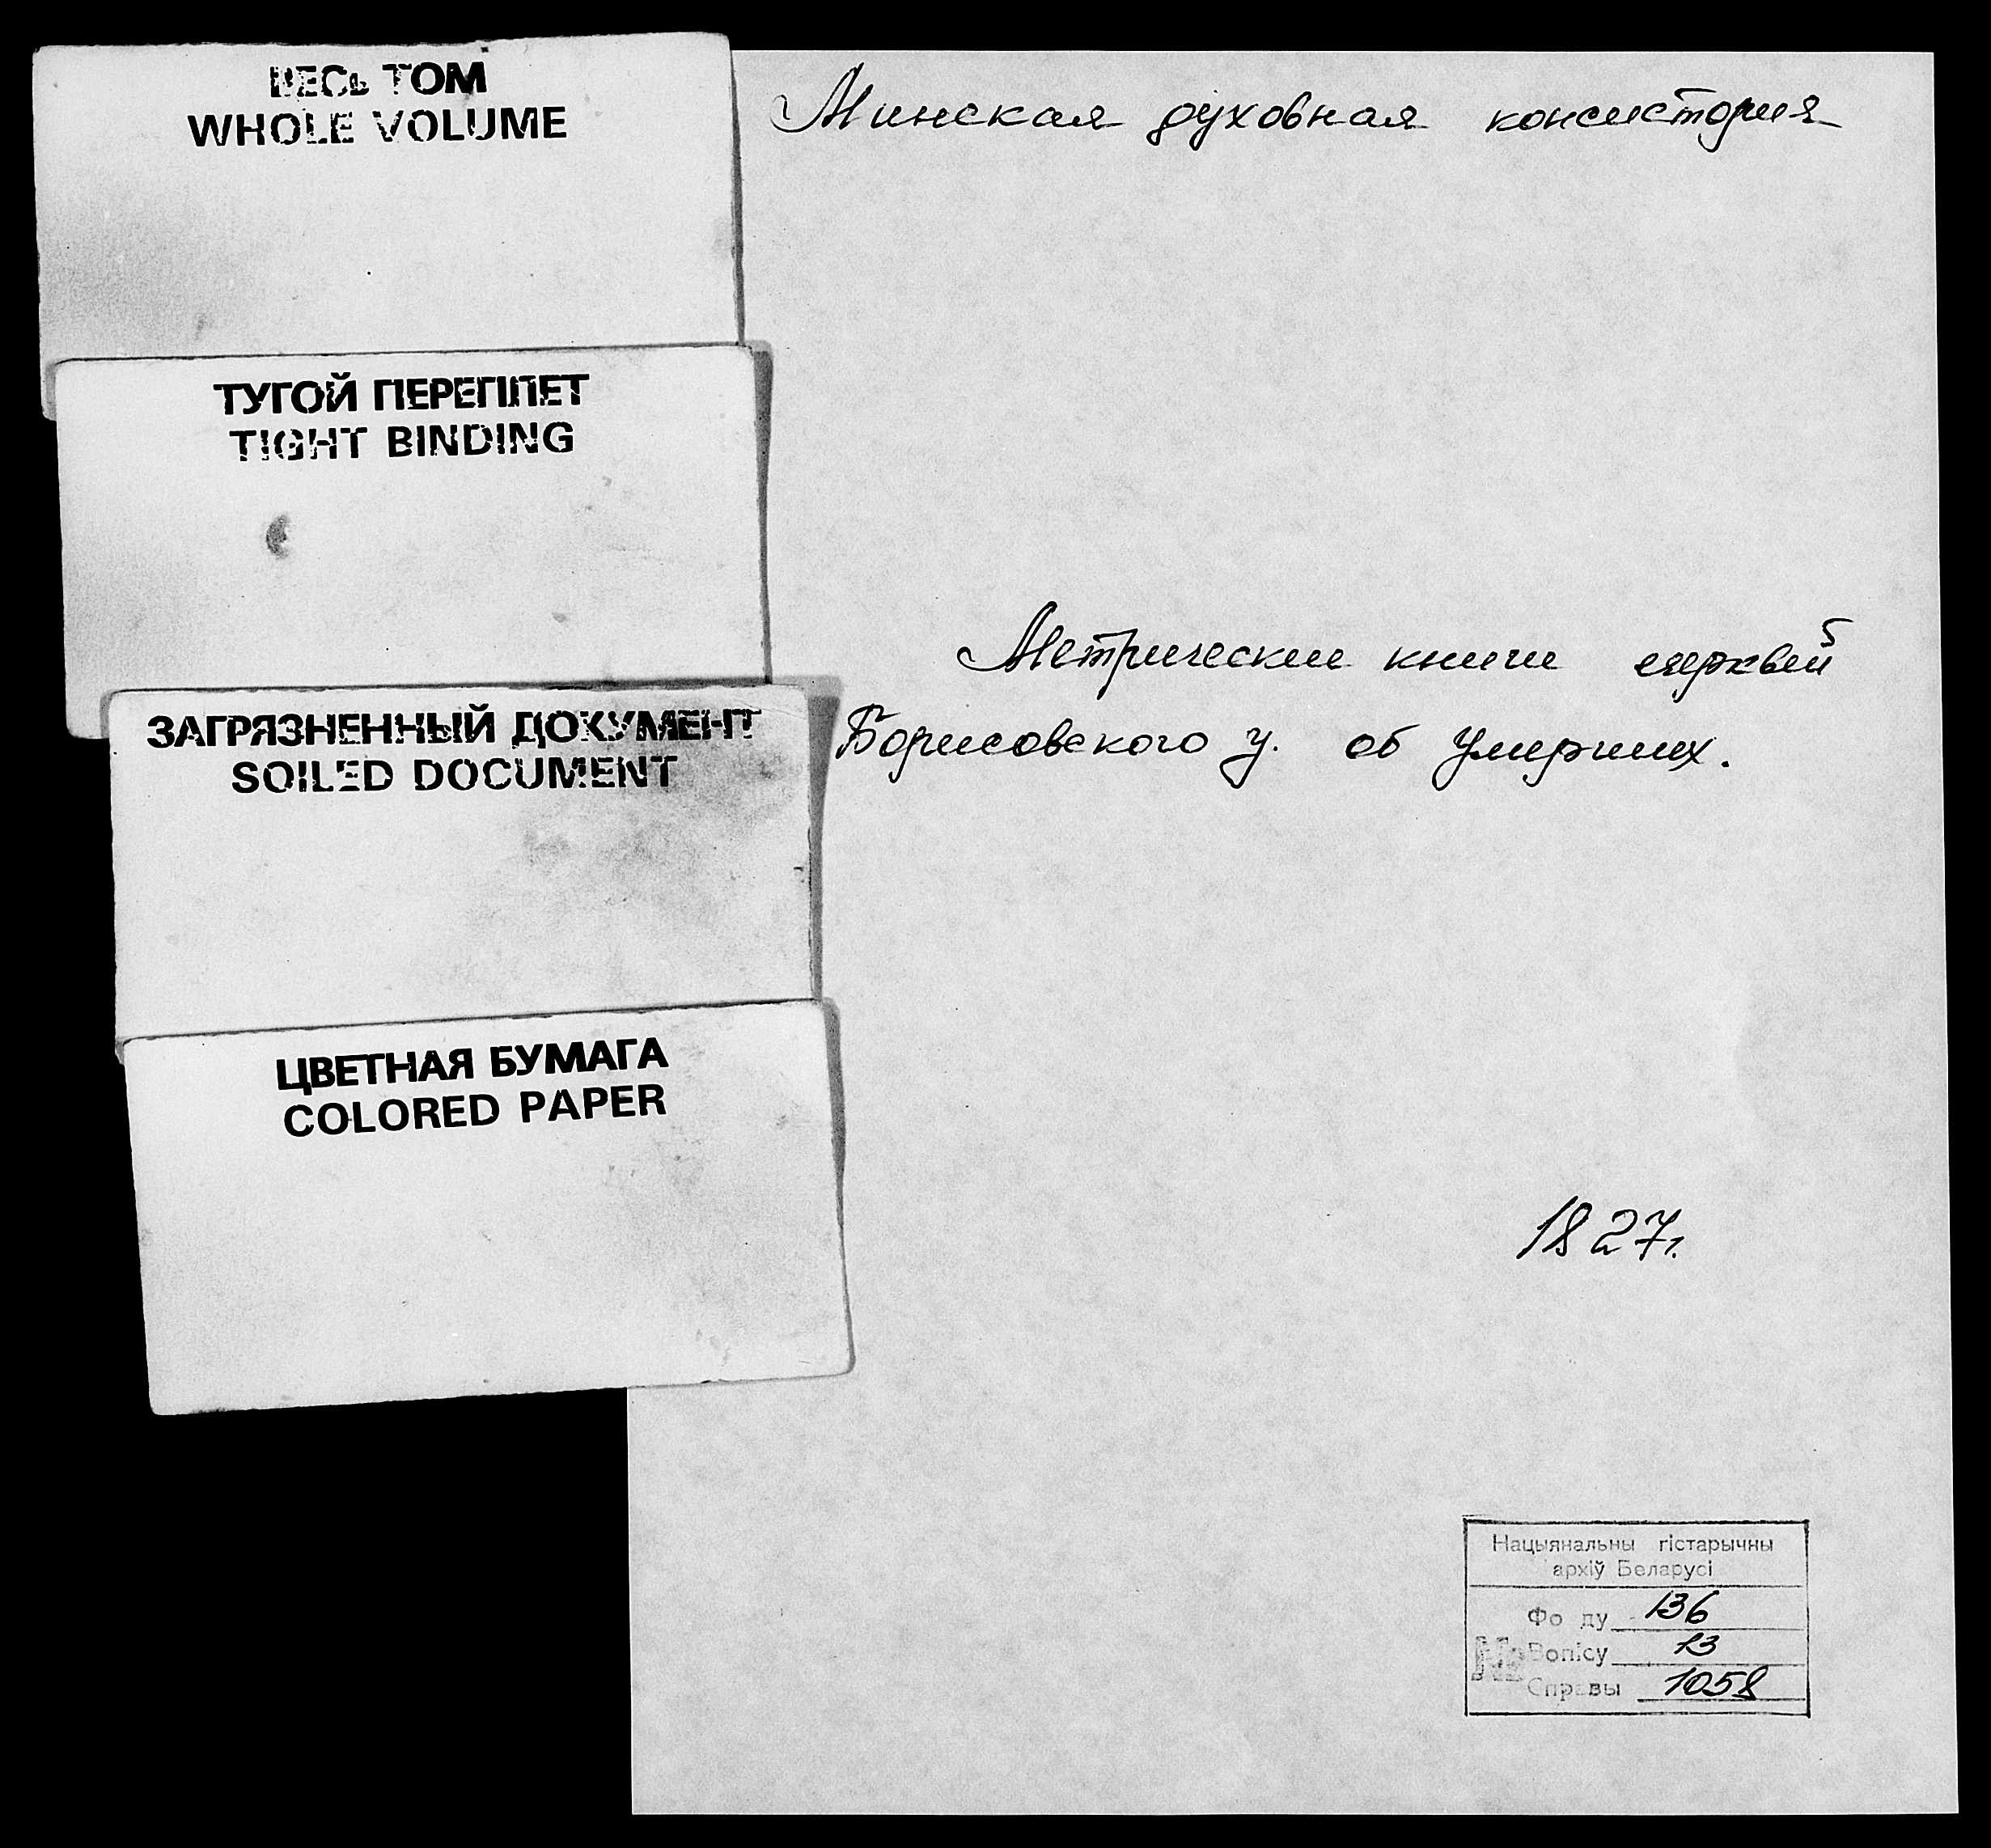 ВЕСЬ ТОМ
WHOLE VOLUME
ТУГОЙ ПЕРЕПЛЕТ
TIGHT BINDING
ЗАГРЯЗНЕННЫЙ ДОКУМЕНТ
SOILED DOCUMENT
ЦВЕТНАЯ БУМАГА
COLORED PAPER
Минская духовная консистория
Метрические книги церквей
Борисовского у. об умерших.
1827г.
Нацыянальны гістарычны
архіў Беларусі
Фо ду 136
№ Вопісу 13
Справы 1058